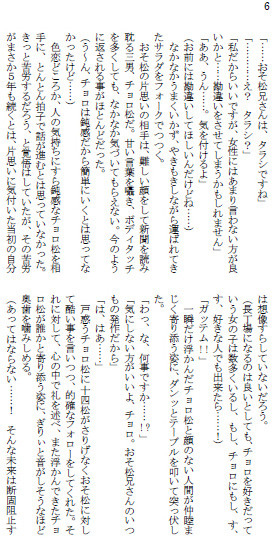 6
「……おそ松兄さんは、タラシですね」
「……え？　タラシ？」
「私だからいいですが、女性にはあまり言わない方が良
いかと……勘違いをさせてしまうかもしれません」
「ああ、うん……。気を付けるよ」
（お前には勘違いしてほしいんだけどね……）
なかなかうまくいかず、やきもきしながら運ばれてき
たサラダをフォークでつつく。
おそ松の片思いの相手は、難しい顔をして新聞を読み
耽る三男、チョロ松だ。甘い言葉を囁き、ボディタッチ
を多くしても、なかなか気づいてもらえない。今のよう
に返される事がほとんどだった。
（う～ん、チョロは鈍感だから簡単にいくとは思ってな
かったけど……）
色恋どころか、人の気持ちにすら鈍感なチョロ松を相
手に、とんとん拍子で話が進むとは思っていなかった。
きっと苦労するだろう、と覚悟はしていたが、その苦労
がまさか５年も続くとは、片思いに気付いた当初の自分
は想像すらしていないだろう。
（長丁場になるのは良いとしても、チョロを好きだって
いう女の子は数多くいるし、もし、チョロにもし、す、
す、好きな人でも出来たら……！）
「ガッテム！！」
一瞬だけ浮かんだチョロ松と顔のない人間が仲睦ま
じく寄り添う姿に、ダンッとテーブルを叩いて突っ伏し
た。
「わっ、な、何事ですか……！？」
「気にしない方がいいよ、チョロ。おそ松兄さんのいつ
もの発作だから」
「は、はあ……」
戸惑うチョロ松に十四松がさりげなくおそ松に対し
て酷い事を言いつつ、的確なフォローをしてくれた。そ
れに対して、心の中で礼を述べ、また浮かんできたチョ
ロ松が誰かと寄り添う姿に、ぎりぃと音がしそうなほど
奥歯を噛みしめる。
（あってはならない……！　そんな未来は断固阻止す